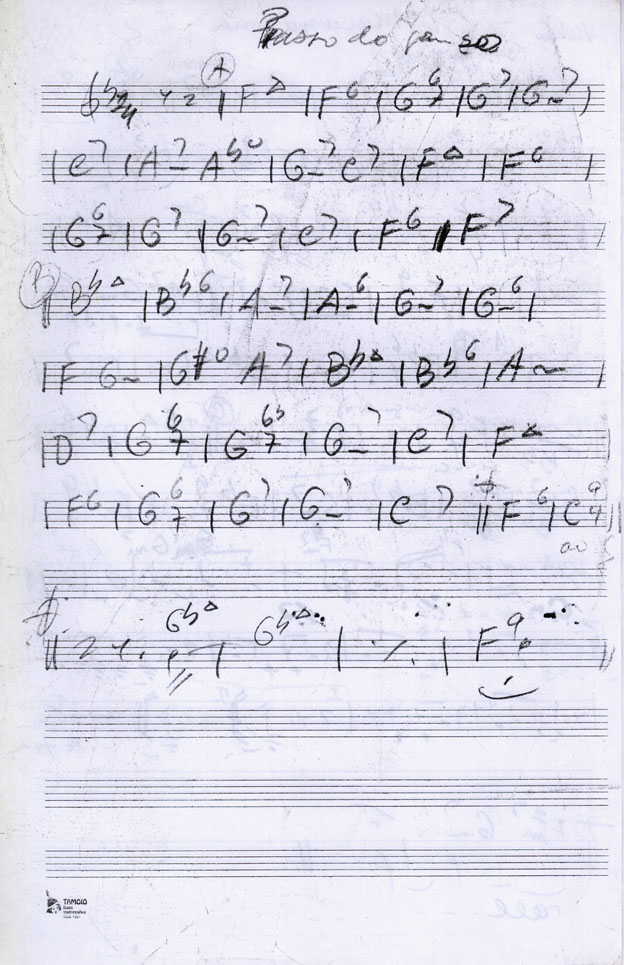 Passo do ganso
A | F△ | F6 | G6/7 | G7 | G-7 |
| C7 | A-7 Ab° | G-7 C7 | F△ | F6 |
| G6/7 | G7 | G-7 | C7 | F6 || F7
B || Bb△ | Bb6 | A-7 | A-6 | G-7 | G-6 |
| F G- | G#° A7 | Bb△ | Bb6 | A- |
| D7 | G6/7 | G6b/7 | G-7 | C7 | F△
| F6 | G6/7 | G7 | G-7 | C7 || F6 | C9/4
ao
Gb△ | Gb△ | ٪ | F9 ||
TAMOIO